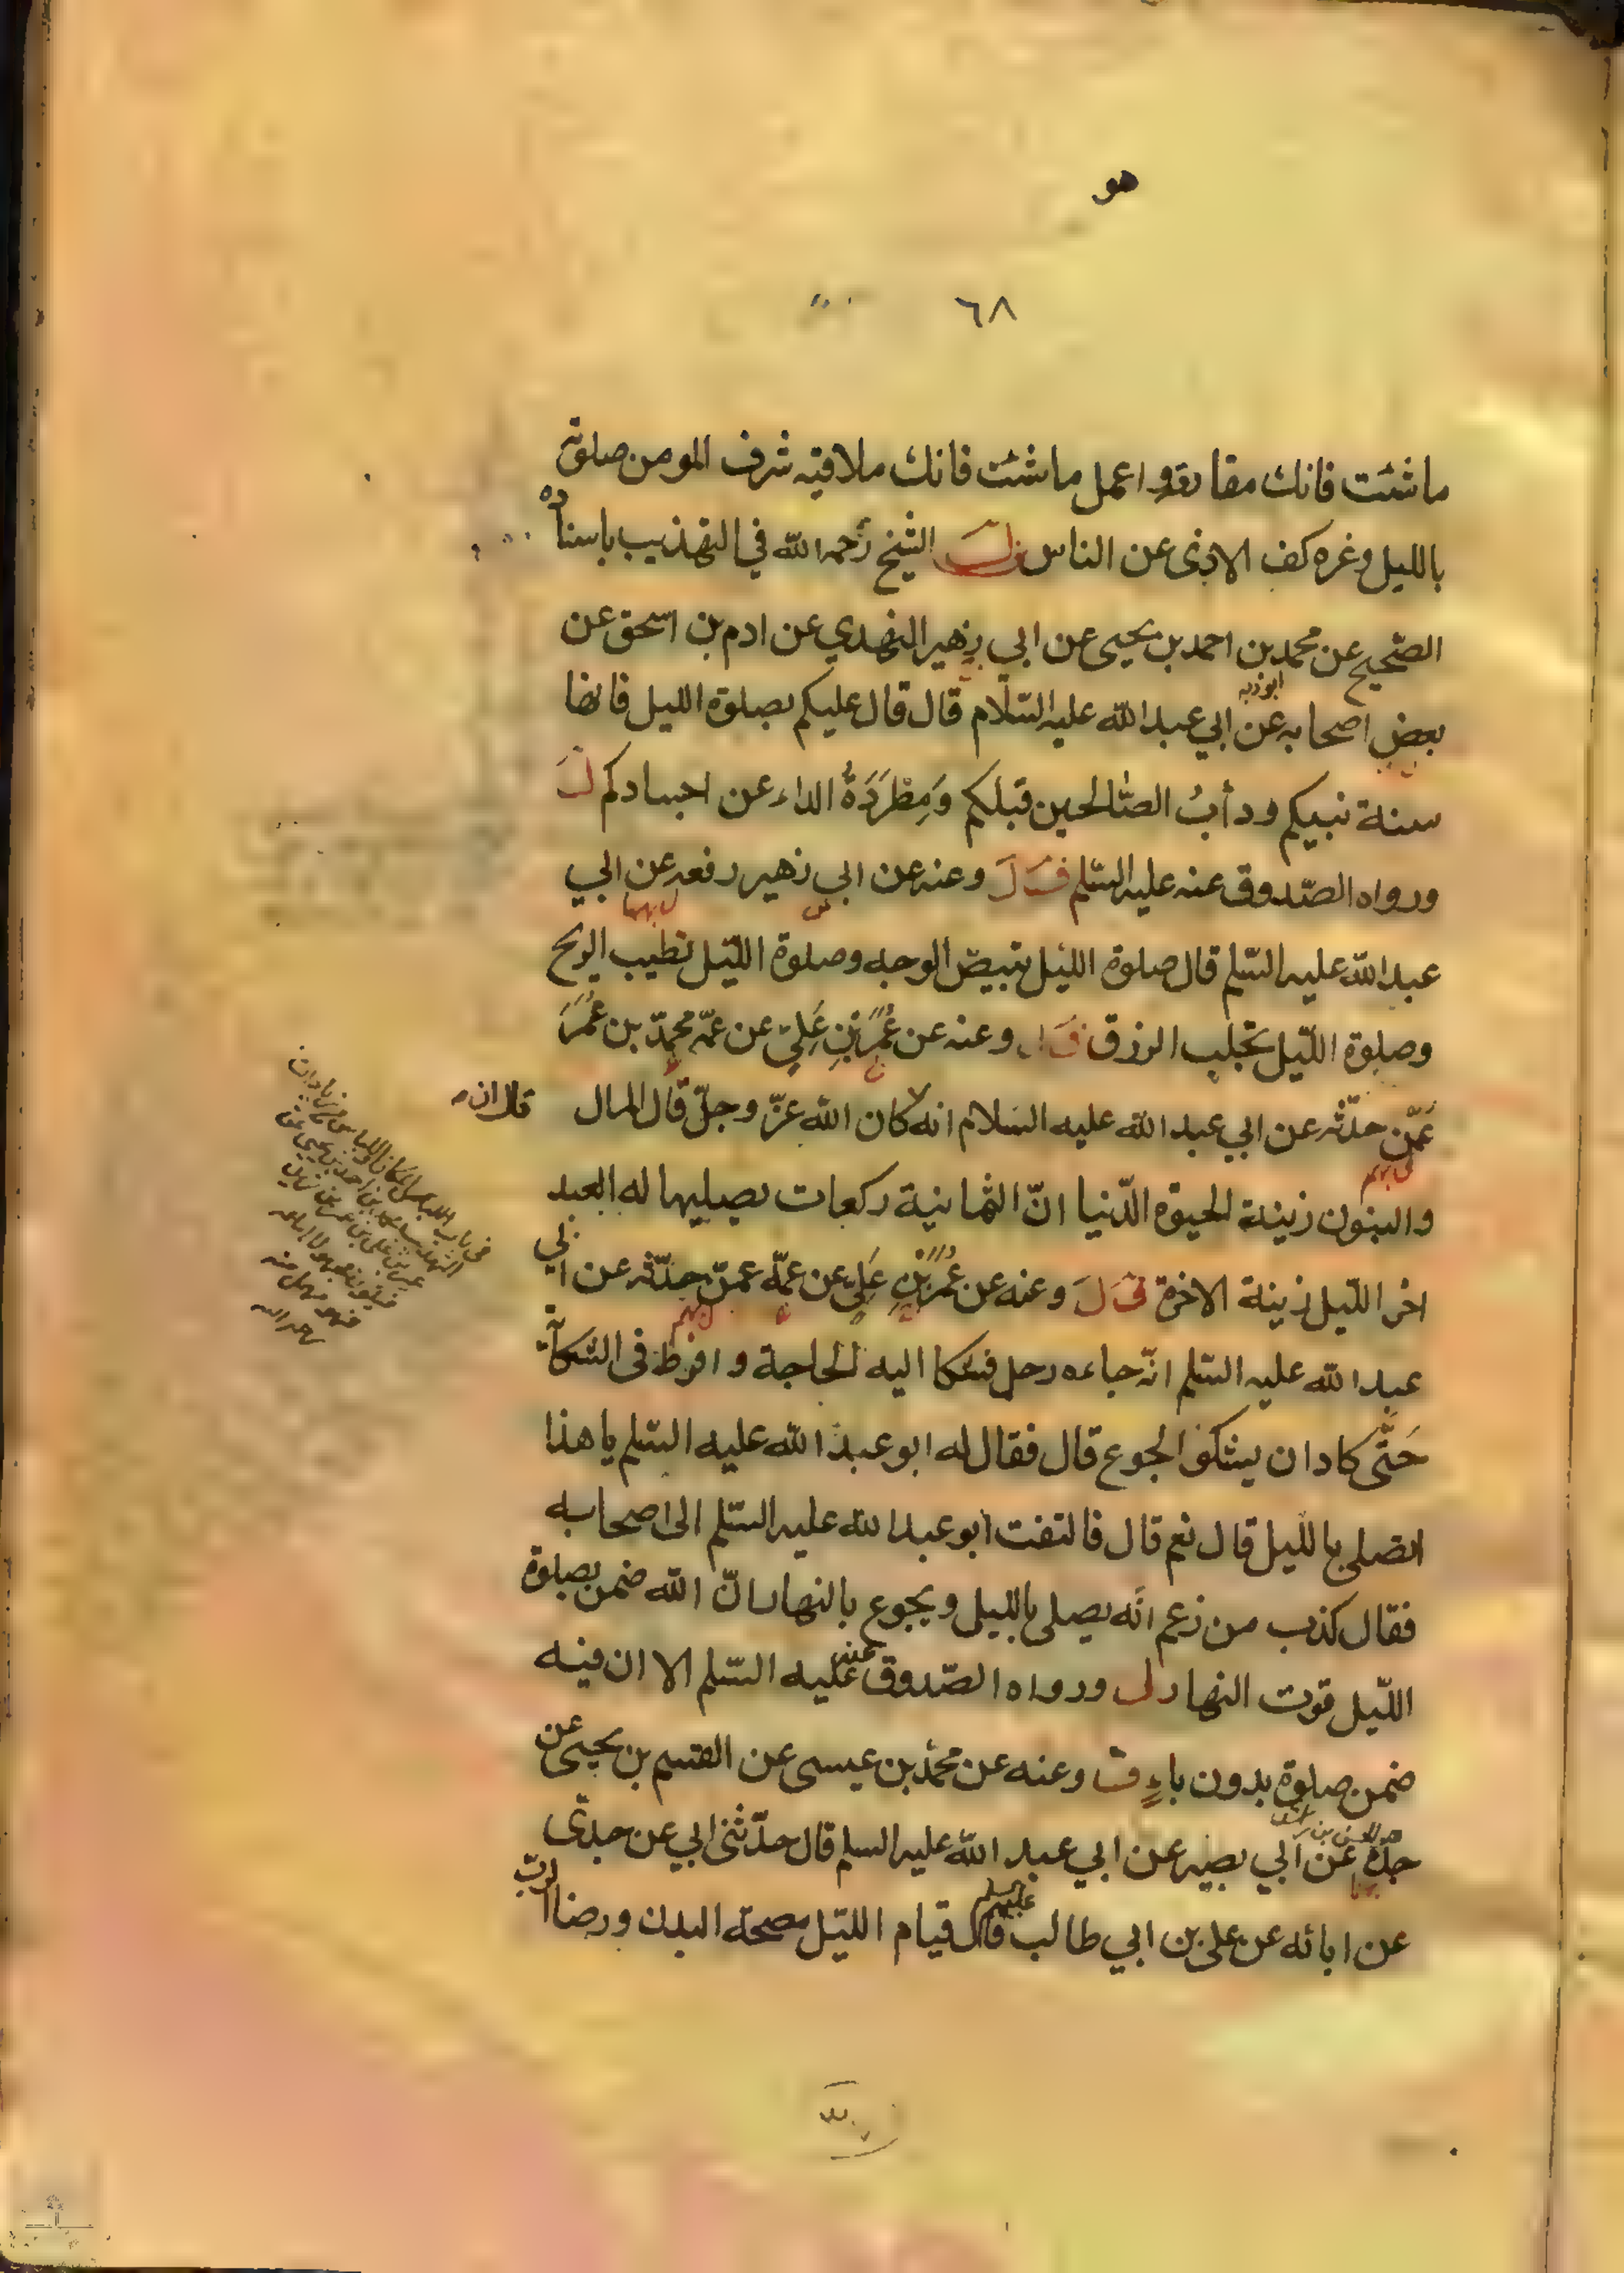 هو
٦٨
ما شئت فانك مفارقه واعمل ما شئت فانك ملاقيه شرف المومن صلوته
بالليل وعزه كف الاذى عن الناس الشيخ رحمه الله في التهذيب باسناده
الصّحيح عن محمد بن احمد بن يحيى عن ابي زهير النهدي عن ادم بن اسحق عن
بعض اصحابه عن ابي عبد الله عليه السّلام قال قال عليكم بصلوة الليل فانها
سنة نبيكم ودأبُ الصّالحين قبلكم وَمِطْرَدَةُ الداء عن اجسادكم
ورواه الصّدوق عنه عليه السّلم وعنه عن ابي زهير رفعه عن ابي
عبد الله عليه السّلم قال صلوة الليل تبيض الوجه وصلوة اللّيل تطيب الريح
وصلوة اللّيل تجلب الرزق وعنه عن عُمَرَ بْنِ عَلِيّ عن عمّه محمّد بن عُمَرَ
عَمّن حدّثه عن ابي عبد الله عليه السلام انه كان الله عزّ وجلّ قال المال
قال ان
والبنون زينة الحيوة الدّنيا انّ الثمانية ركعات يصليها له العبد
اخر اللّيل زينة الاخرة وعنه عن عُمَرَ بْنِ عَلِيّ عن عمّه عمّن حدّثه عن ابي
عبد الله عليه السّلم انّه جاءه رجل فشكا اليه الحاجة وافرط في الشكاية
حَتَّى كاد ان يشكو الجوع قال فقال له ابو عبد الله عليه السّلم يا هذا
اتصلي بالّليل قال نعم قال فالتفت ابو عبد الله عليه السّلم الى اصحابه
فقال كذب من زعم انّه يصلي بالليل ويجوع بالنهار انّ الله ضمن بصلوة
اللّيل قوت النهار ورواه الصّدوق عنه عليه السّلم الا ان فيه
ضمن صلوة بدون باءٍ وعنه عن محمّد بن عيسى عن القسم بن يحيى عن
جدّه عن ابي بصير عن ابي عبد الله عليه السلم قال حدّثني ابي عن جدّي
عن ابائه عن علي بن ابي طالب عليهم السلم قال قيام اللّيل مصحة البدن ورضا الرّبّ